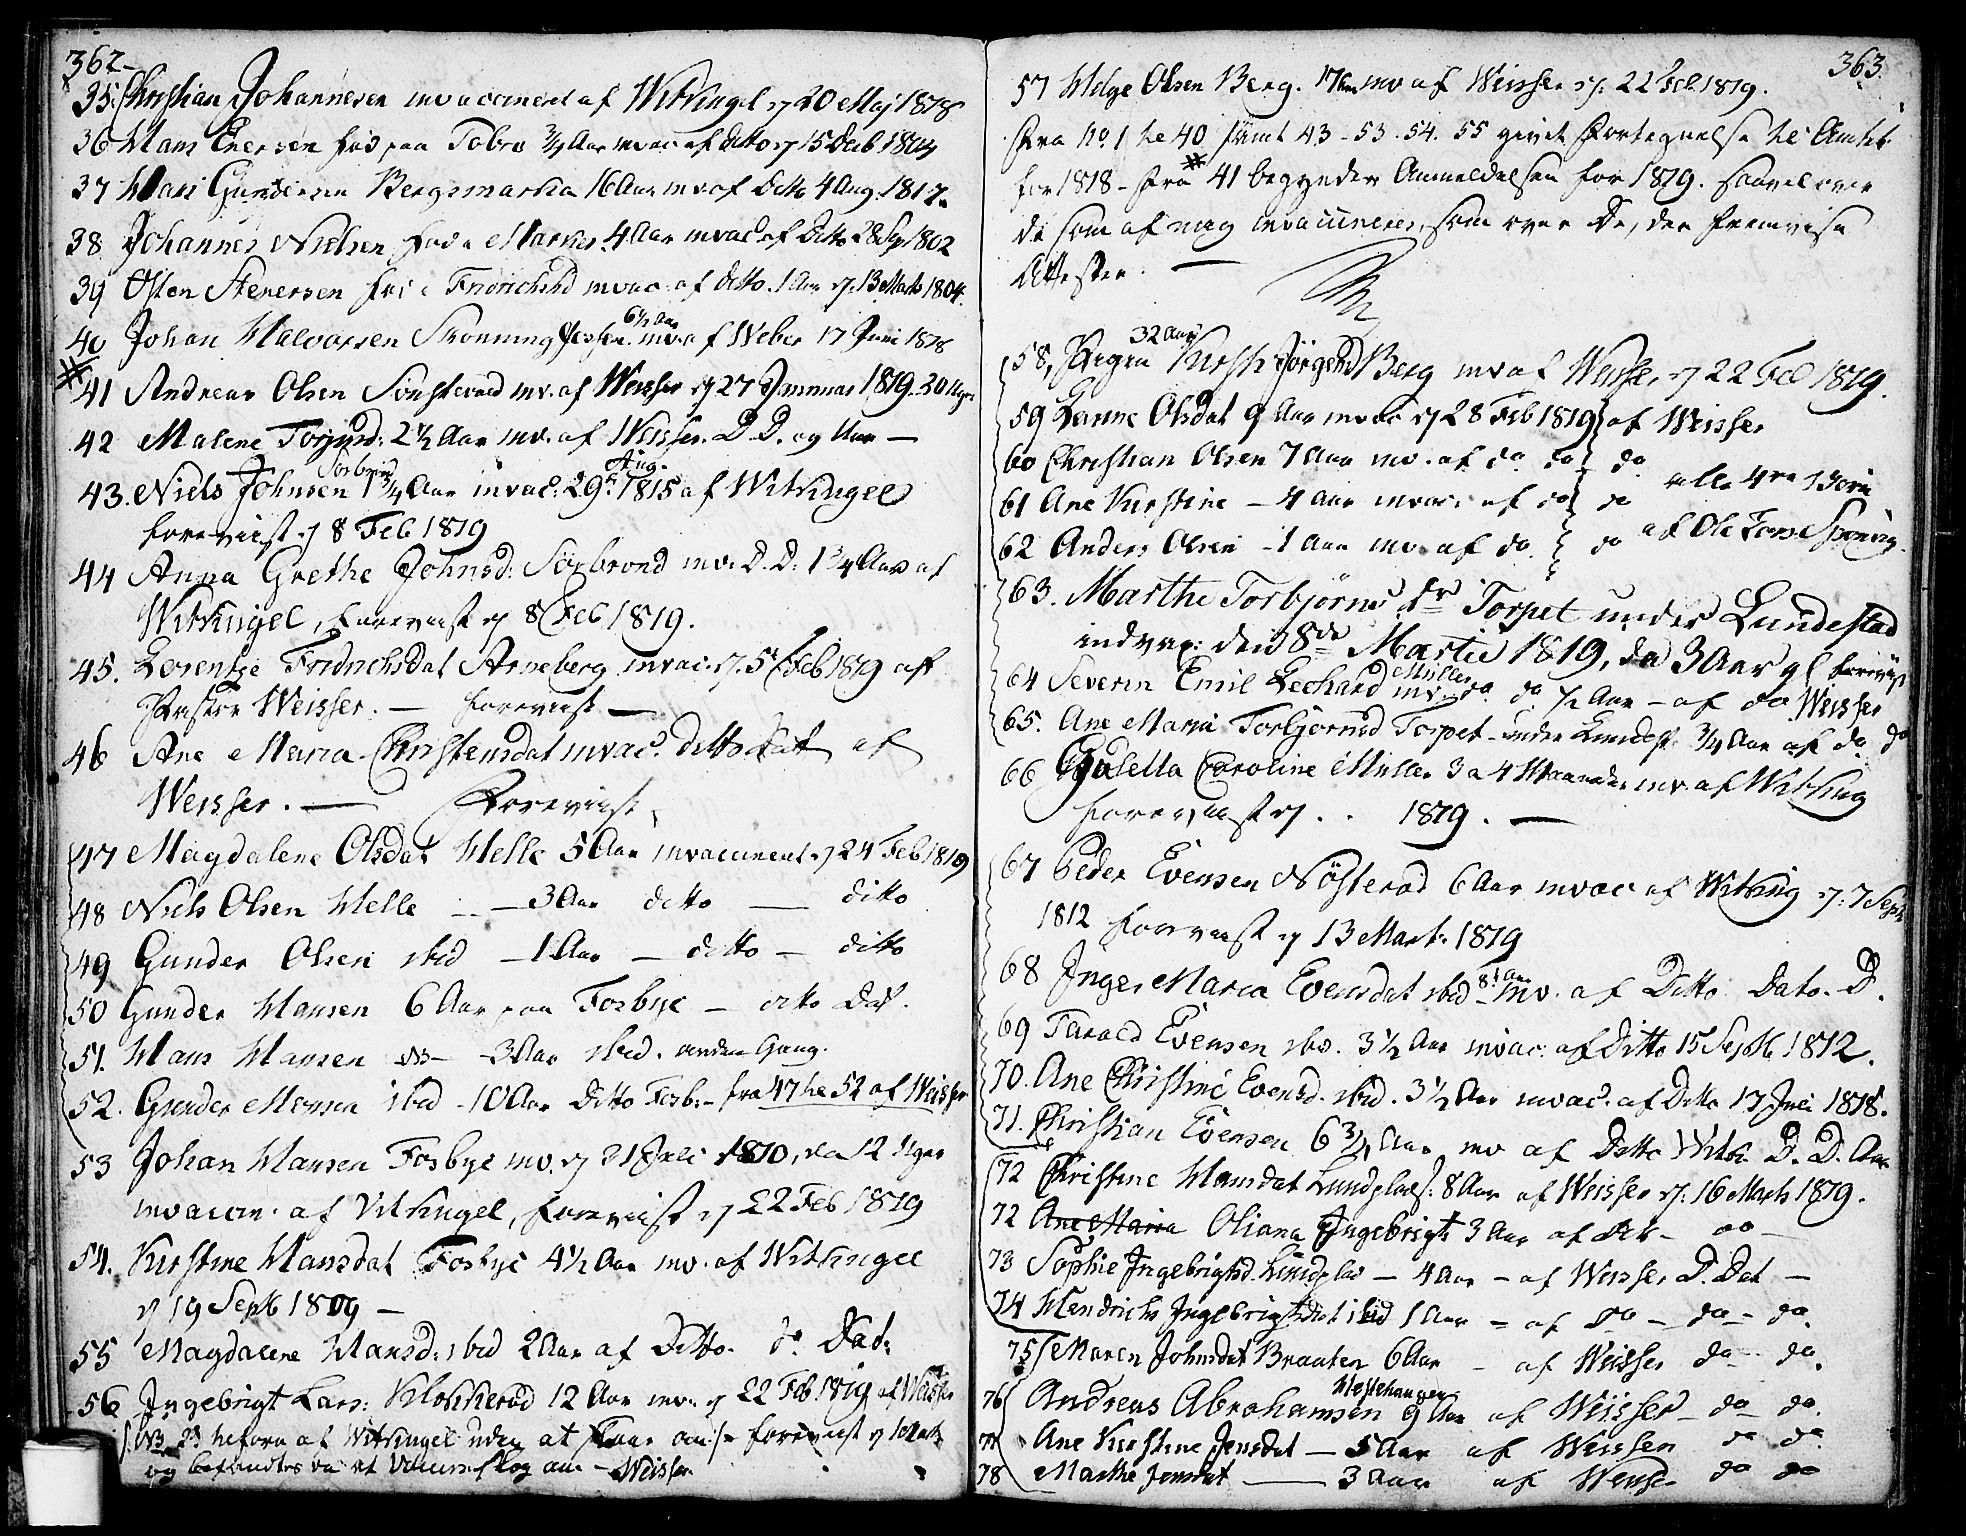 362
35. Christian Johannesen invaccineret af Witkingel d 20 Maj 1818
36 Hans Enersen fød paa Tobro 3/4 Aar invac af ditto d 15 Decb 1804
37 Hans Gundersen Bergsmarkia 16 Aar inv af Ditto 4 Aug. 1817.
38 Johannes Nielsen fød i Marker 4 Aar invac af Ditto 28 Sep 1802
39 Osten Stenersen fød i Fridrichshd invac af ditto 1 Aar d 13 Marts 1804.
40 Johan Halvorsen Skonning 6½ Aar inv af Weber 17 Juni 1818
41 Andreas Olsen Sønsterød inv. af Weisser d 27 Januar 1819 - 20 Uger
42 Malene Torjusd: 2½ Aar inv. af Weisser D. D. og Aar —
43. Niels Johnsen Sørbrønd 1¾ Aar invac: 29de Aug. 1815 af Witkingel
foreviist d 8 Feb 1819
44 Anna Grethe Johnsd: Sørbrond inv. D. D: 1¾ Aar af
Witkingel, foreviist d 8 Feb 1819.
45. Lorentze Fridrichsdat Arneberg invac. d. 5 Feb 1819 af
Pastor Weisser. — foreviist —
46 Ane Maria Christensdat invac. ditto Dat af
Weisser. — Foreviist
47 Magdalene Olsdat Helle 5 Aar invaccineret d 24 Feb 1819
48 Niels Olsen Helle — 3 Aar ditto — ditto
49 Gunder Olsen ibid — 1 Aar — ditto — ditto
50 Gunder Hansen 6 Aar paa Fosbye — ditto Dat.
51. Hans Hansen — 3 Aar ibid. anden Gang.
52. Gunder Monsen ibid - 10 Aar Ditto Fosb: - fra 47 til 52 af Weisser
53 Johan Hansen Fosbye inv. d 21 Juli 1810, da 12 Uger
invaccin. af Vitkingel, foreviist d 22 Feb 1819
54. Kirstine Hansdat Fosbye 4½ Aar inv. af Witkingel
d 19 Septb 1809 —
55 Magdalene Hansd: ibid 2 Aar af Ditto. do Dat:
56 Ingebrigt Lars: Klokkerød 12 Aar inv. d 22 Feb 1819 af Weisser
NB. er tilforn af Witkingel uden at foreviist d 10 Marts
og befandtes - Weisser
363.
57 Helge Olsen Berg. 17 Aar inv af Weisser d. 22 Feb 1819.
Fra No. 1 til 40 samt 43 - 53 - 54. 55 givet Fortegnelse til Amtet
for 1818 - Fra 41 begynder Anmeldelsen for 1819. saavel over
de som af mig invaccineres, som over De, der fremvise
Attester. —
58, Pigen Kirsti Jörgensd Berg 32 Aar inv af Weisser d 22 Feb 1819.
59 Hanne Olsdat 9 Aar invac d 28 Feb 1819 af Weisser
60 Christian Olsen 7 Aar inv. af do do do
61 Ane Kirstine — 4 Aar invac. af do do alle 4re Børn
62 Anders Olsen - 1 Aar inv af do. do af Ole
63. Marthe Torbjörns dr Torpet under Lundestad
indvac: den 8de Martii 1819, da 3 Aar gl foreviist
64 Severin Emil Lechard Müller inv. do do ½ Aar — af do Weisser
65. Ane Maria Torbjörnsd Torpet under Lundest. ¾ Aar af do do
66 Caroline Müller 3 a 4 Maaneder inv af Witking
foreviist d . . 1819. —
67 Peder Evensen Nösterød 6 Aar invac af Witking d. 7 Septb
1812 foreviist d 13 Mart. 1819
68 Inger Maria Evensdat ibid 8½ Aar inv. af Ditto Dato. D.
69 Tarald Evensen ibd. 3½ Aar invac. af Ditto 15 Septb 1812.
70. Ane Christine Evensd. ibid. 3½ Aar invac. af Ditto 17 Juli 1818.
71. Christian Evensen 6¾ Aar inv af Ditto Witk. D. D. Aar
72 Christine Hansdat Lundplads: 8 Aar af Weisser d. 16 Marts 1819.
72 Ane Maria Oliana Ingebrigts 3 Aar af Ditto - do —
73 Sophie Ingebrigtsd. Lundplds — 4 Aar — af Weisser D. Dat —
74 Hendriche Ingebrigtsdat ibid 1 Aar — af Do — do — do.
75 Maren Johnsdat Braaten 6 Aar — af Weisser do do.
76 Andreas Abrahamsen Hestehaugen 9 Aar af Weisser — do do.
77 Ane Kirstine Jensdat — 5 Aar af Weisser do do.
78 Marthe Jensdat — 3 Aar af Weisser do do